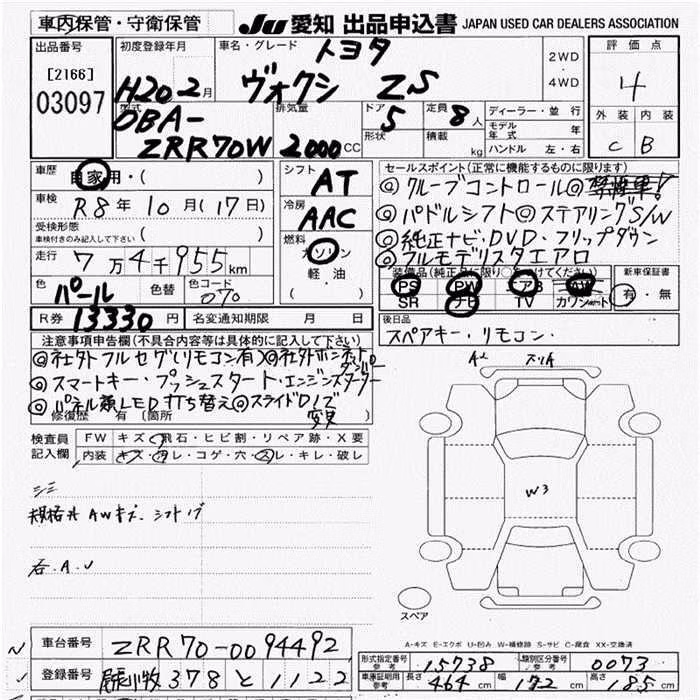 車内保管・守衛保管 JU 愛知 出品申込書 JAPAN USED CAR DEALERS ASSOCIATION
出品番号 初度登録年月 車名・グレード トヨタ 2WD・4WD 評価点
[2166] H20 2月 ヴォクシ ZS 4
03097
型式 排気量 ドア 定員 ディーラー・並行 外装 内装
DBA- 5 8人 モデル年式 年
ZRR70W 2000CC 形状 積載 kg ハンドル 左・右 C B
車歴 自家用・( ) シフト AT セールスポイント(正常に機能するものに限ります)
車検 R8年10月(17日) 冷房 AAC ◎クルーズコントロール◎禁煙車!
受検形態 ( ) ◎パドルシフト◎ステアリングS/W
車検付きのみ記入して下さい 燃料 ◎純正ナビ・DVD・フリップダウン
走行 7万4千955km ガソリン ◎フルモデリスタエアロ
色 パール 色替 色コード 070 軽油 ( ) 装備品(純正品に限り○をつけてください) 新車保証書
PS PW エアB AW 有・無
SR ナビ TV カワシート
R券 13330円 名変通知期限 月 日 後日品
スペアキー・リモコン
注意事項申告欄(不具合内容等は具体的に記入して下さい)
◎社外フルセグ(リモコン有)◎社外ボンネットダンパー
◎スマートキー・プッシュスタート・エンジンスターター
◎パネル兼LED打ち替え◎スライドノブ変更
修復歴 有 (箇所
検査員記入欄 FW キズ・飛石・ヒビ割・リペア跡・X要
内装 キズ・スレ・コゲ・穴・スレ・キレ・破し
規格外 AWキズ シフトノブ
各.A.U
W3
スペア
A-キズ E-エクボ U-凹み W-補修跡 S-サビ C-腐食 XX-交換済
車台番号 ZRR70-0094492
形式指定番号 参考 15738 類別区分番号 参考 0073
登録番号 378 と 1122
車庫証明用 参考 長さ 464cm 幅 172cm 高さ 185cm